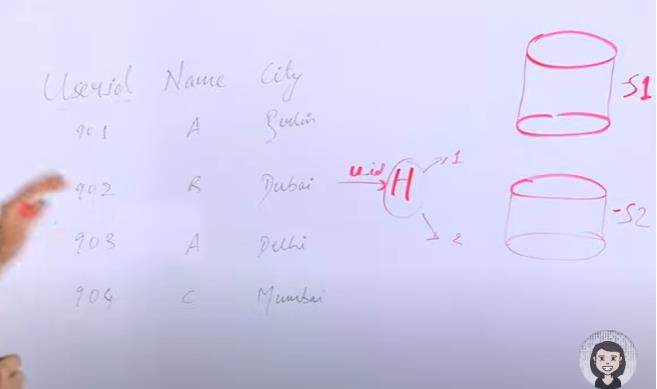 Userid Name City
901 A Berlin
902 B Dubai
903 A Delhi
904 C Mumbai
u_id
H
1
2
S1
S2